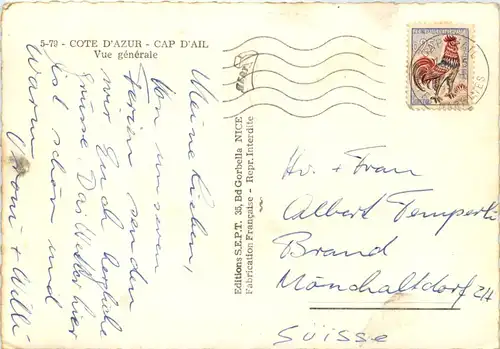 5-79 - COTE D'AZUR - CAP D'AIL
Vue générale
Meine Lieben,
Von unseren
Ferien senden
wir Euch herzliche
Grüsse. Das Wetter hier
ist schön und
warm
Vroni + Willi
Editions S.E.P.T. 35, Bd Gorbella NICE
Fabrication Française - Repr. Interdite
Hr. + Frau
Albert Temperli
Brand
Mönchaltdorf ZH
Suisse